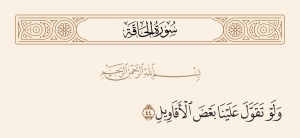 سورة الحاقة
بسم الله الرحمن الرحيم
ولو تقول علينا بعض الأقاويل ٤٤